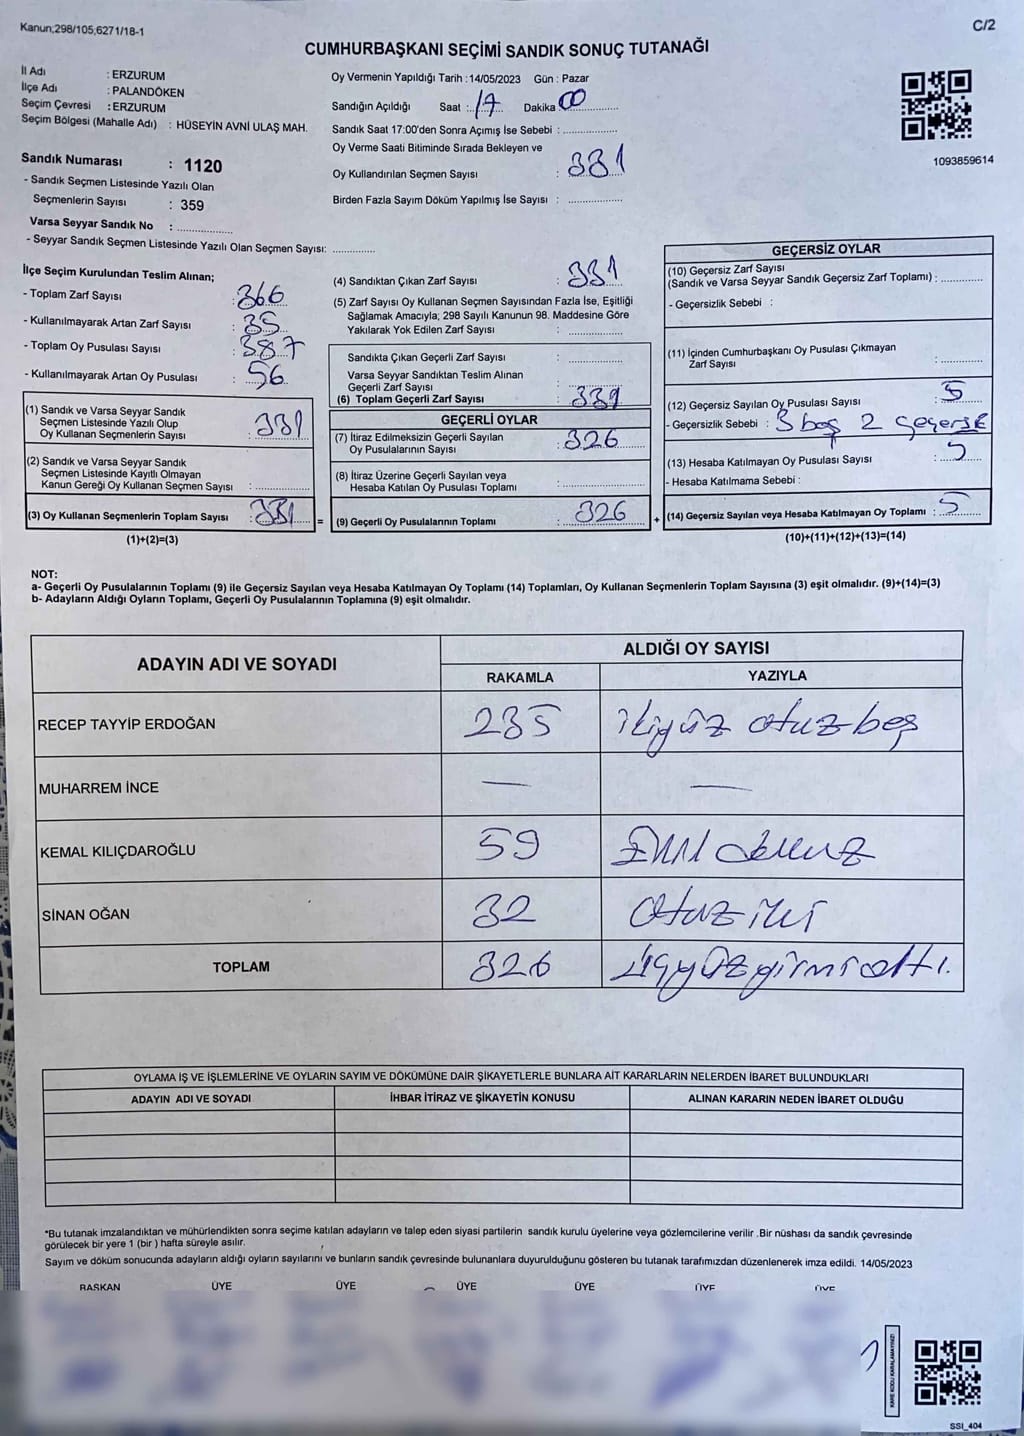 Kanun;298/105;6271/18-1
C/2
CUMHURBAŞKANI SEÇİMİ SANDIK SONUÇ TUTANAĞI
İl Adı : ERZURUM
İlçe Adı : PALANDÖKEN
Seçim Çevresi : ERZURUM
Seçim Bölgesi (Mahalle Adı) : HÜSEYİN AVNİ ULAŞ MAH.
Sandık Numarası : 1120
- Sandık Seçmen Listesinde Yazılı Olan
Seçmenlerin Sayısı : 359
Varsa Seyyar Sandık No : ..................
- Seyyar Sandık Seçmen Listesinde Yazılı Olan Seçmen Sayısı: .............
Oy Vermenin Yapıldığı Tarih :14/05/2023 Gün : Pazar
Sandığın Açıldığı Saat : 17 Dakika 00
Sandık Saat 17:00'den Sonra Açımış İse Sebebi : ..................
Oy Verme Saati Bitiminde Sırada Bekleyen ve
Oy Kullandırılan Seçmen Sayısı : 331
Birden Fazla Sayım Döküm Yapılmış İse Sayısı : ..................
1093859614
İlçe Seçim Kurulundan Teslim Alınan;
- Toplam Zarf Sayısı : 366
- Kullanılmayarak Artan Zarf Sayısı : 35
- Toplam Oy Pusulası Sayısı : 387
- Kullanılmayarak Artan Oy Pusulası : 56
(1) Sandık ve Varsa Seyyar Sandık
Seçmen Listesinde Yazılı Olup
Oy Kullanan Seçmenlerin Sayısı : 331
(2) Sandık ve Varsa Seyyar Sandık
Seçmen Listesinde Kayıtlı Olmayan
Kanun Gereği Oy Kullanan Seçmen Sayısı : ..................
(3) Oy Kullanan Seçmenlerin Toplam Sayısı : 331 =
(1)+(2)=(3)
(4) Sandıktan Çıkan Zarf Sayısı : 331
(5) Zarf Sayısı Oy Kullanan Seçmen Sayısından Fazla İse, Eşitliği
Sağlamak Amacıyla; 298 Sayılı Kanunun 98. Maddesine Göre
Yakılarak Yok Edilen Zarf Sayısı : ..................
Sandıkta Çıkan Geçerli Zarf Sayısı : ..................
Varsa Seyyar Sandıktan Teslim Alınan
Geçerli Zarf Sayısı : ..................
(6) Toplam Geçerli Zarf Sayısı : 331
GEÇERLİ OYLAR
(7) İtiraz Edilmeksizin Geçerli Sayılan
Oy Pusulalarının Sayısı : 326
(8) İtiraz Üzerine Geçerli Sayılan veya
Hesaba Katılan Oy Pusulası Toplamı : ..................
(9) Geçerli Oy Pusulalarının Toplamı : 326 +
GEÇERSİZ OYLAR
(10) Geçersiz Zarf Sayısı
(Sandık ve Varsa Seyyar Sandık Geçersiz Zarf Toplamı) : .............
- Geçersizlik Sebebi :
(11) İçinden Cumhurbaşkanı Oy Pusulası Çıkmayan
Zarf Sayısı : .............
(12) Geçersiz Sayılan Oy Pusulası Sayısı : 5
- Geçersizlik Sebebi : 3 boş 2
(13) Hesaba Katılmayan Oy Pusulası Sayısı : 5
- Hesaba Katılmama Sebebi :
(14) Geçersiz Sayılan veya Hesaba Katılmayan Oy Toplamı : 5
(10)+(11)+(12)+(13)=(14)
NOT:
a- Geçerli Oy Pusulalarının Toplamı (9) ile Geçersiz Sayılan veya Hesaba Katılmayan Oy Toplamı (14) Toplamları, Oy Kullanan Seçmenlerin Toplam Sayısına (3) eşit olmalıdır. (9)+(14)=(3)
b- Adayların Aldığı Oyların Toplamı, Geçerli Oy Pusulalarının Toplamına (9) eşit olmalıdır.
ADAYIN ADI VE SOYADI
ALDIĞI OY SAYISI
RAKAMLA YAZIYLA
RECEP TAYYİP ERDOĞAN 235 ikiyüz otuzbeş
MUHARREM İNCE — —
KEMAL KILIÇDAROĞLU 59 Elli dokuz
SİNAN OĞAN 32 otuz iki
TOPLAM 326 üçyüzyirmialtı.
OYLAMA İŞ VE İŞLEMLERİNE VE OYLARIN SAYIM VE DÖKÜMÜNE DAİR ŞİKAYETLERLE BUNLARA AİT KARARLARIN NELERDEN İBARET BULUNDUKLARI
ADAYIN ADI VE SOYADI İHBAR İTİRAZ VE ŞİKAYETİN KONUSU ALINAN KARARIN NEDEN İBARET OLDUĞU
*Bu tutanak imzalandıktan ve mühürlendikten sonra seçime katılan adayların ve talep eden siyasi partilerin sandık kurulu üyelerine veya gözlemcilerine verilir .Bir nüshası da sandık çevresinde
görülecek bir yere 1 (bir ) hafta süreyle asılır.
Sayım ve döküm sonucunda adayların aldığı oyların sayılarını ve bunların sandık çevresinde bulunanlara duyurulduğunu gösteren bu tutanak tarafımızdan düzenlenerek imza edildi. 14/05/2023
BAŞKAN ÜYE ÜYE ÜYE ÜYE ÜYE ÜYE
KARE KODU KARALAMAYINIZ!
SSI_404